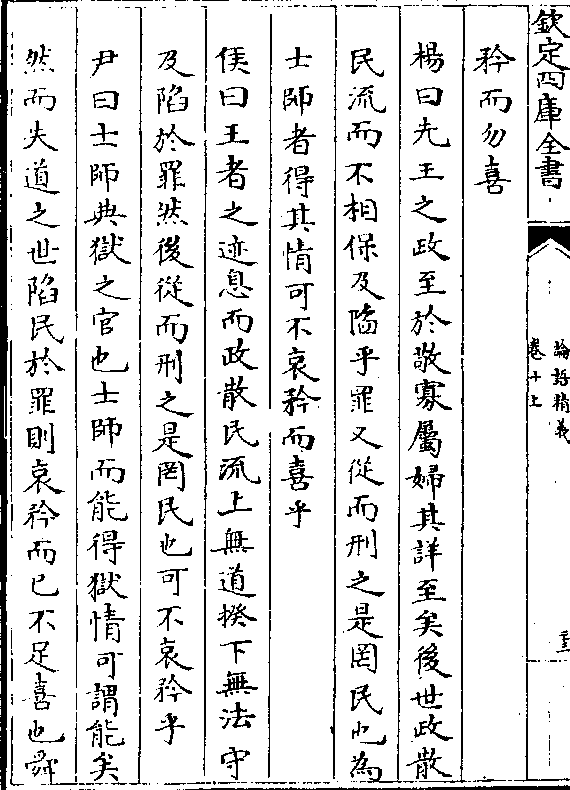 欽定四庫全書
論語精義
卷十上
矜而勿喜
楊曰先王之政至於敬寡屬婦其詳至矣後世政散
民流而不相保及陷乎罪又從而刑之是罔民也為
士師者得其情可不哀矜而喜乎
侯曰王者之迹息而政散民流上無道揆下無法守
及陷於罪然後從而刑之是罔民也可不哀矜乎
尹曰士師典獄之官也士師而能得獄情可謂能矣
然而失道之世陷民於罪則哀矜而已不足喜也舜